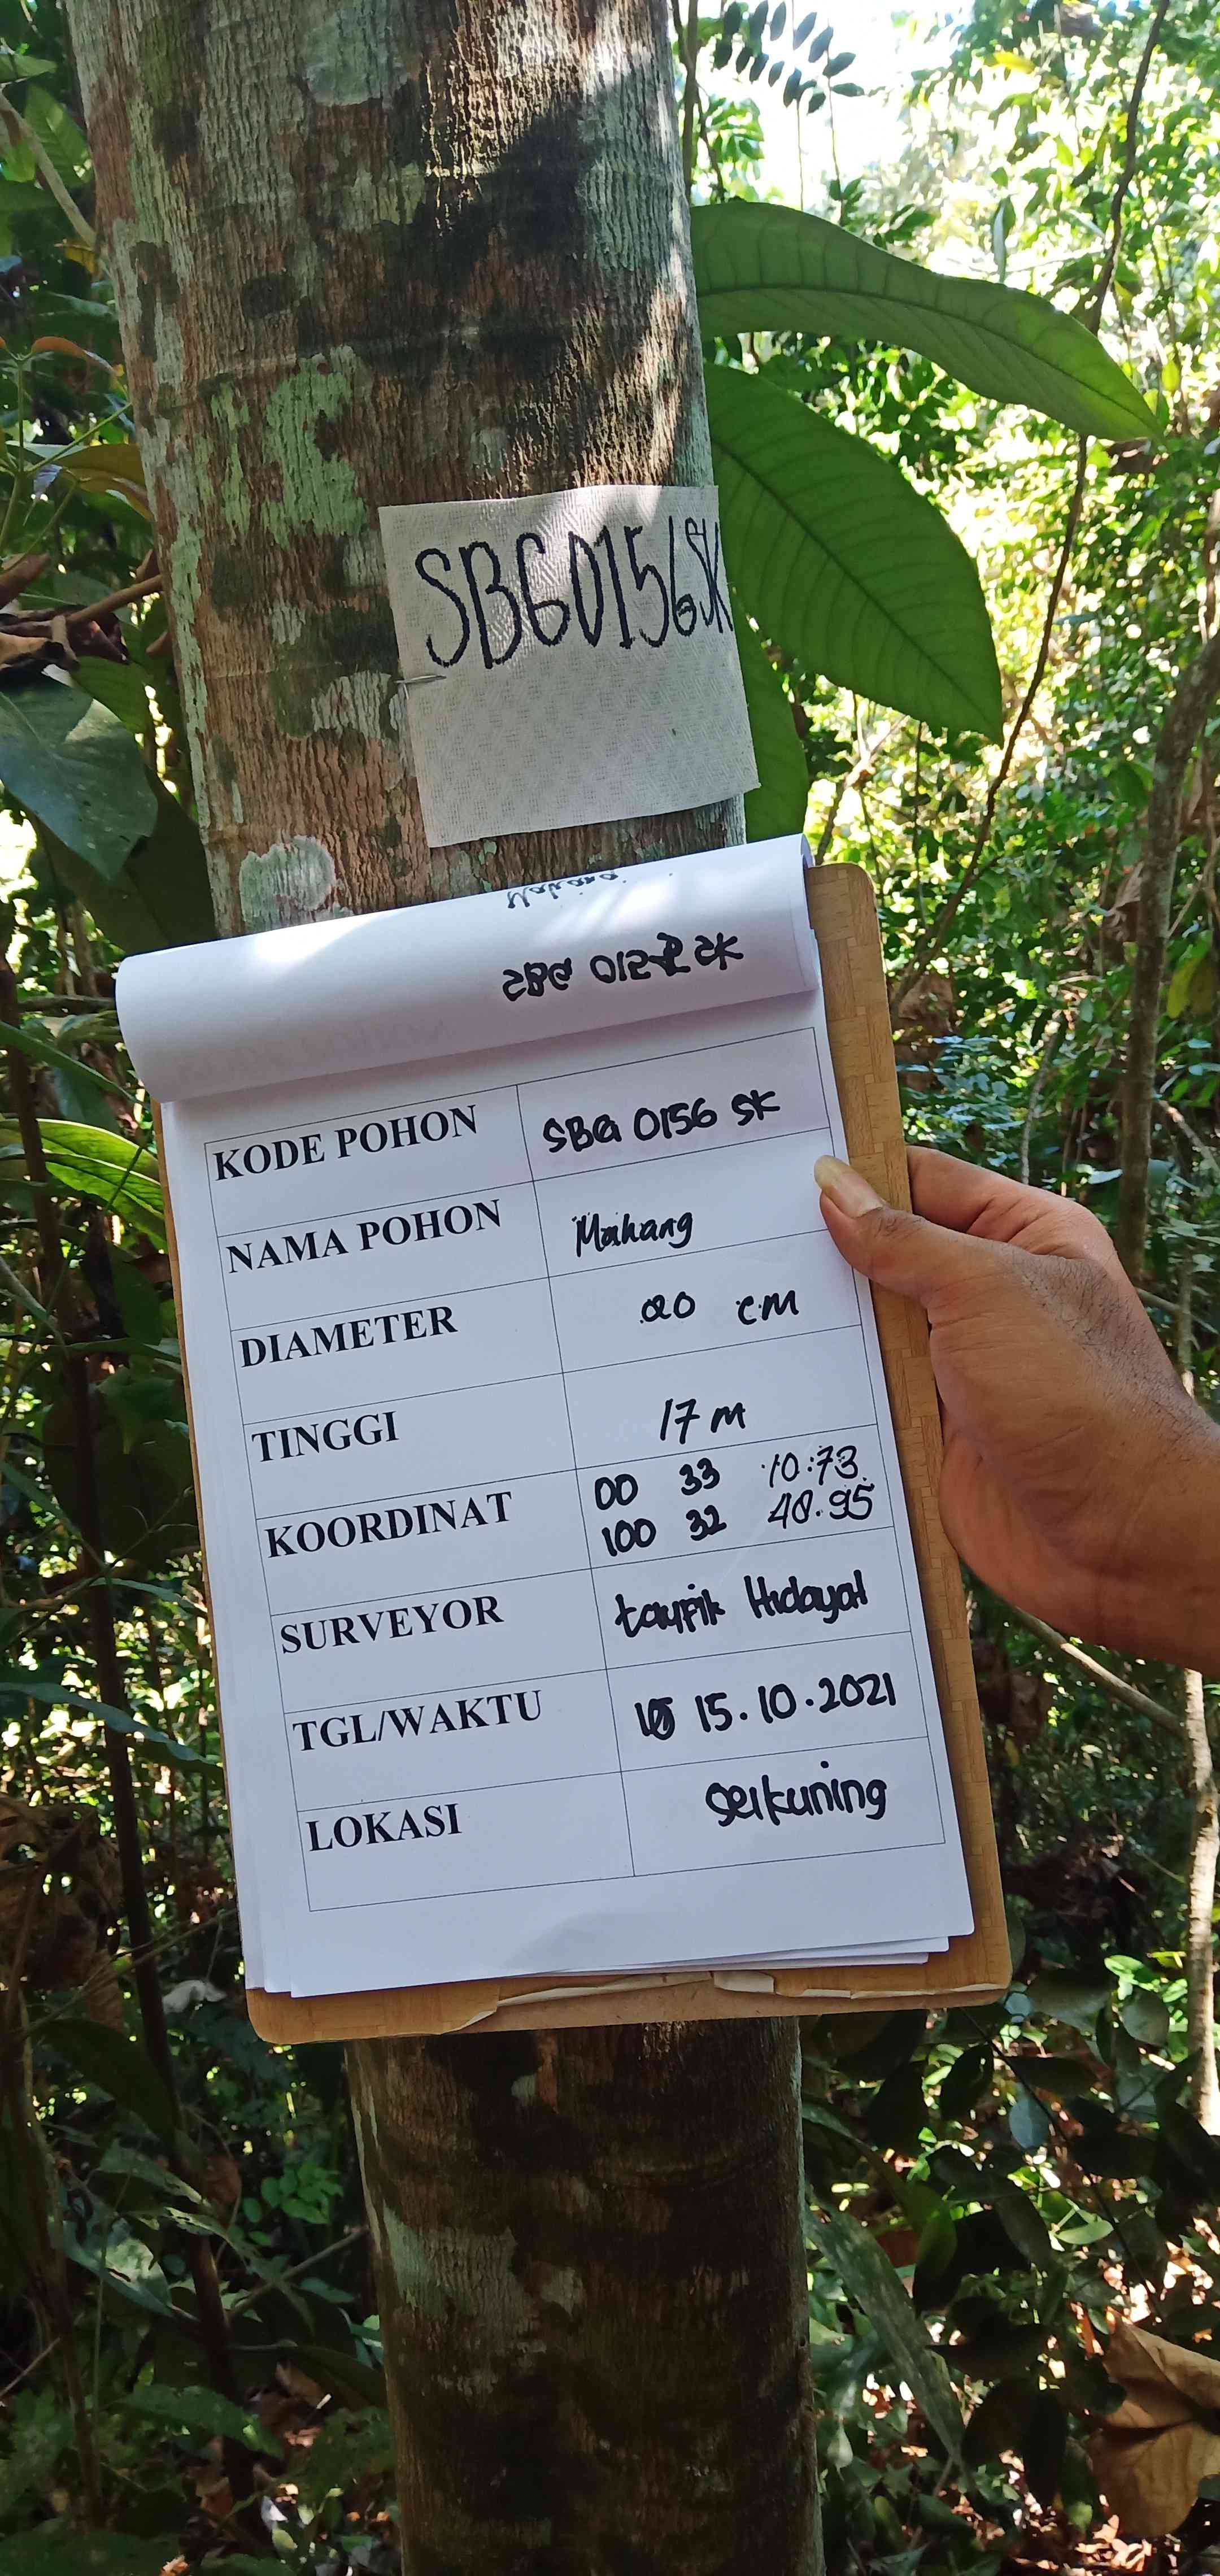 SBG0156SK
KODE POHON SBG 0156 SK
NAMA POHON Mahang
DIAMETER 20 cm
TINGGI 17 m
KOORDINAT 00 33 10.73
100 32 40.95
SURVEYOR taufik Hidayat
TGL/WAKTU 15.10.2021
LOKASI seikuning